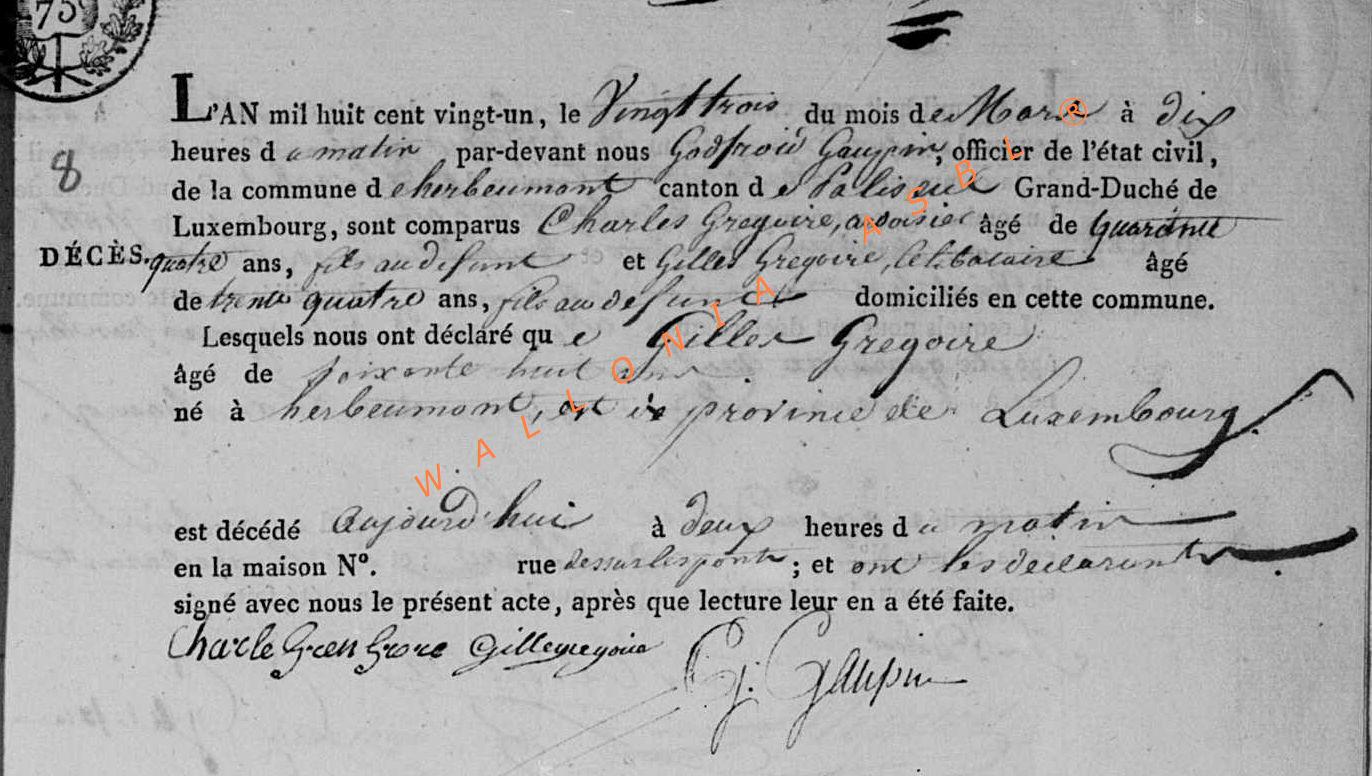 75
8
L'AN mil huit cent vingt-un, le Vingt trois du mois de Mars à dix
heures du matin par-devant nous Godfroid Gaupin, officier de l'état civil,
de la commune d'herbeumont canton de Paliseul Grand-Duché de
Luxembourg, sont comparus Charles Gregoire, ardoisier âgé de quarante
DÉCÈS. quatre ans, fils au defunt et Gilles Gregoire, celibataire âgé
de trente quatre ans, fils au defunct domiciliés en cette commune.
Lesquels nous ont déclaré que Gilles Gregoire
âgé de soixante huit ans
né à herbeumont, province de Luxembourg.
est décédé aujourd'hui à deux heures du matin
en la maison N°. rue dessus les ponts ; et ont les declarants
signé avec nous le présent acte, après que lecture leur en a été faite.
Charle Gilles gregoire G. Gaupin
WALLONIA ASBL ®